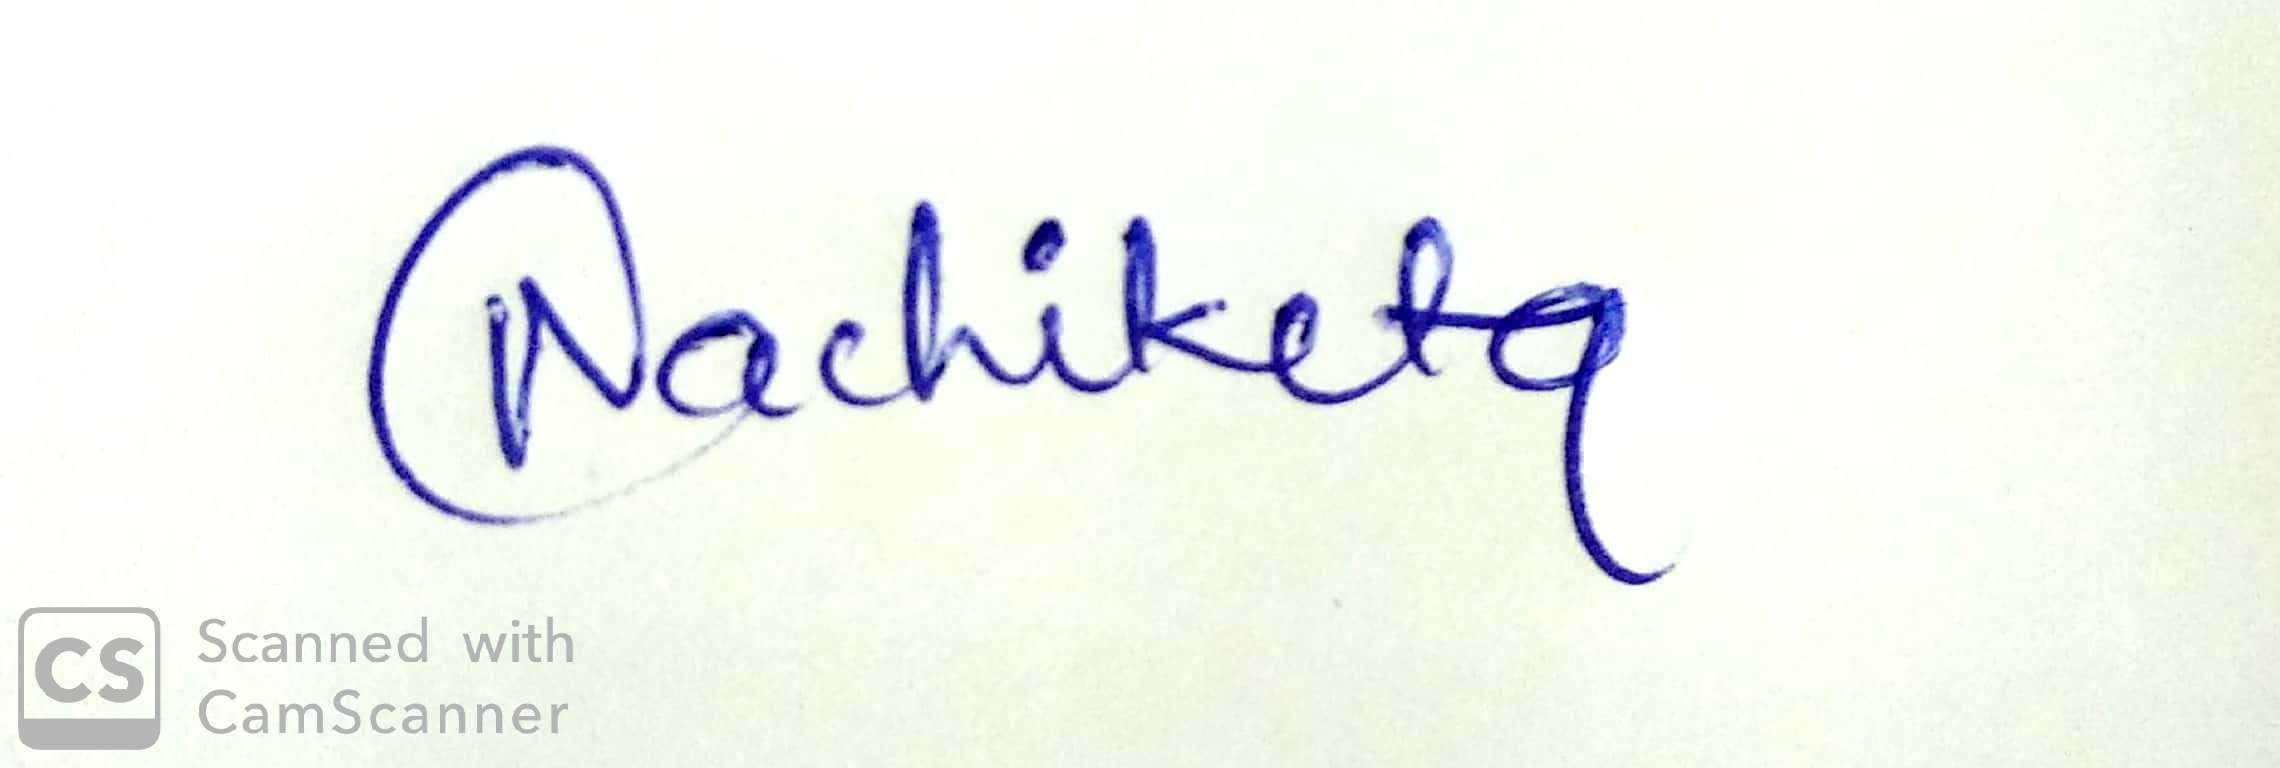 Nachiketa
CS
Scanned with
CamScanner